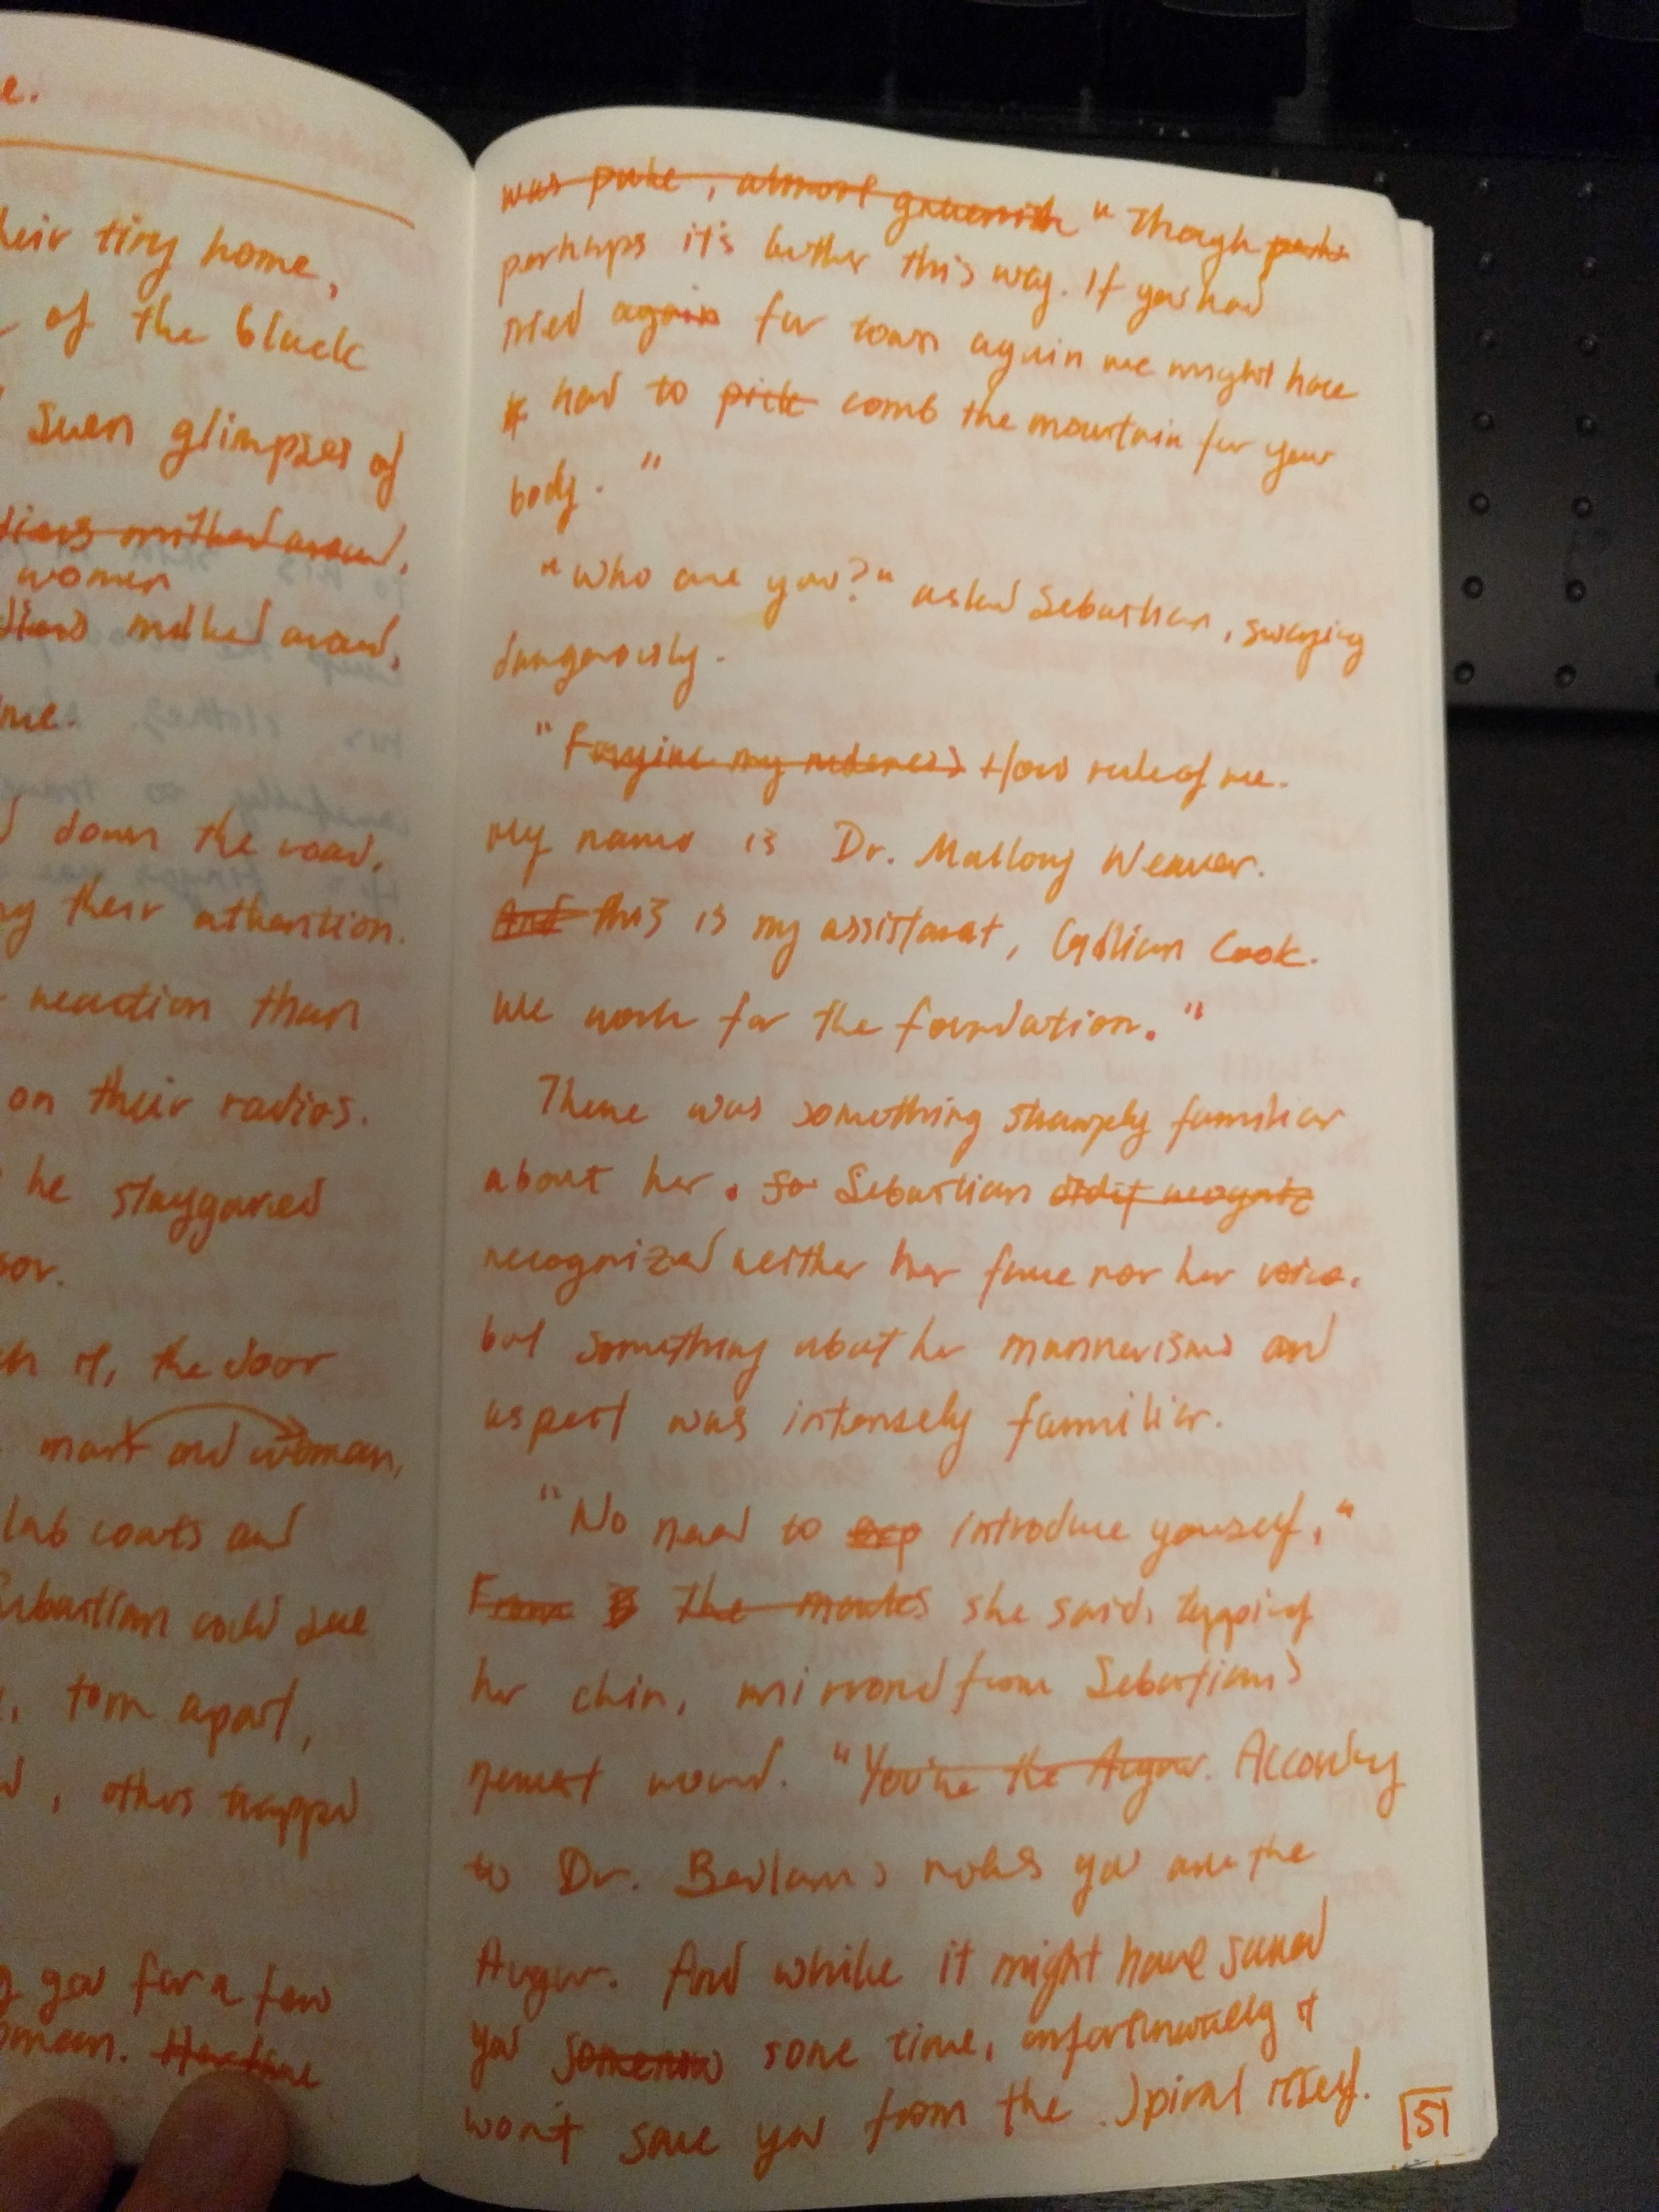 e.
heir tiny home,
of the black
Seen glimpses of
diers milled around,
women
milled around,
me.
down the road,
ng their athention.
reaction than
on their radios.
he staggared
sor.
ch it, the door
man and woman,
lab coats and
Sebastian could see
, torn apart,
, others trapped
g you for a few
oman.
was pale, almost greenish "Though
perhaps it's bether this way. If you had
tried again for town again we might have
had to pick comb the mountain for your
body."
"Who are you?" asked Sebastian, swaying
dangerously.
"Forgive my rudeness How rude of me.
My name is Dr. Mallory Weaver.
And this is my assistant, Gillian Cook.
We work for the foundation."
There was something strangely familiar
about her. So Sebastian
recognized neither her face nor her voice.
but something about her mannerisms and
aspect was intensely familiar.
"No need to introduce yourself."
The she said, tapping
her chin, mirrored from Sebastian's
newest wound. "You're the Augur. According
to Dr. Bedlam's notes you are the
Augur. And while it might have saved
you some time, unfortunately it
won't save you from the Spiral itself.
51